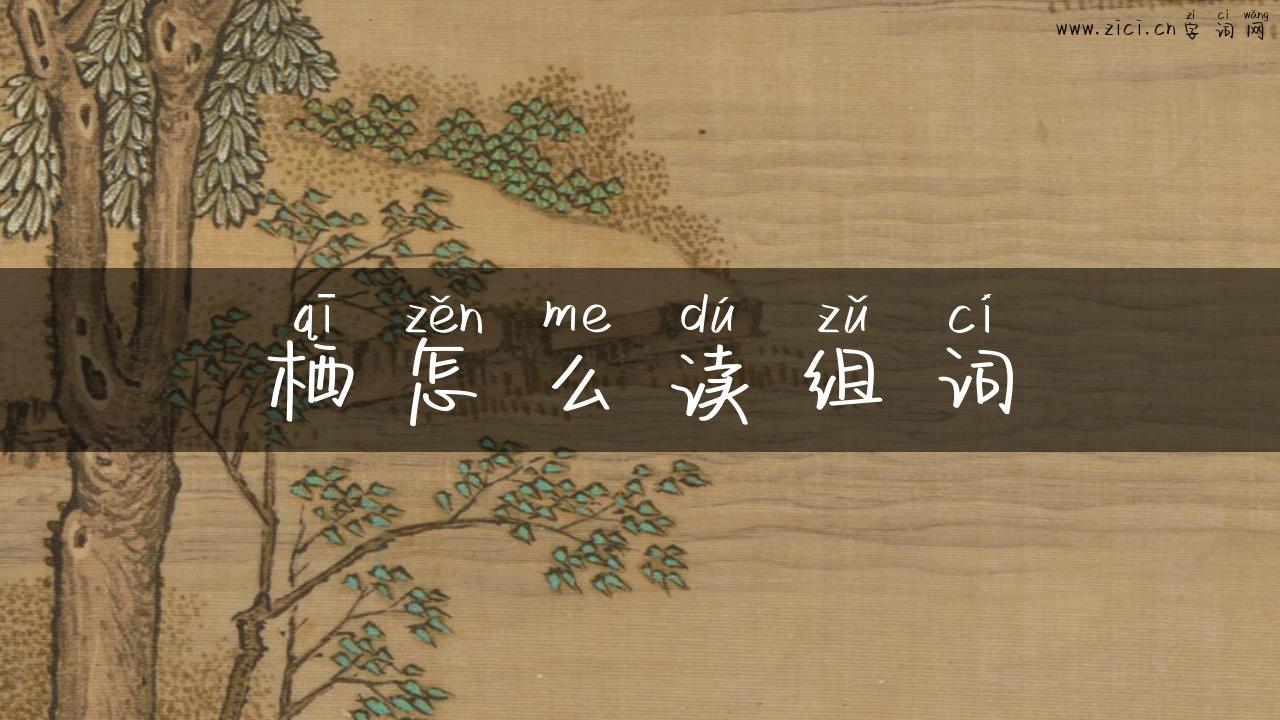 zì cí wǎng
www.zici.cn 字词网
qī zěn me dú zǔ cí
栖怎么读组词